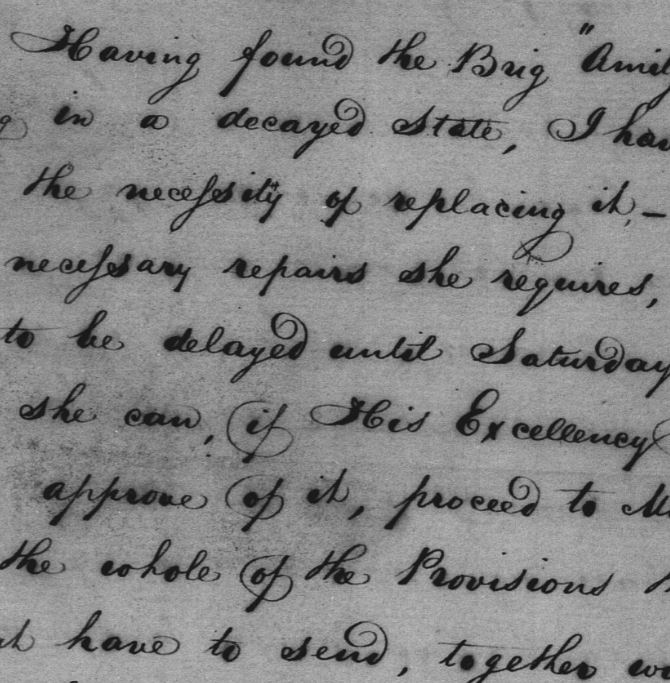 Having found the Brig "Amil
in a decayed State, I hav
the necessity of replacing it, —
necessary repairs she requires,
to be delayed until Saturday
she can, if His Excellency
approve of it, proceed to M
the whole of the Provisions
have to send, together